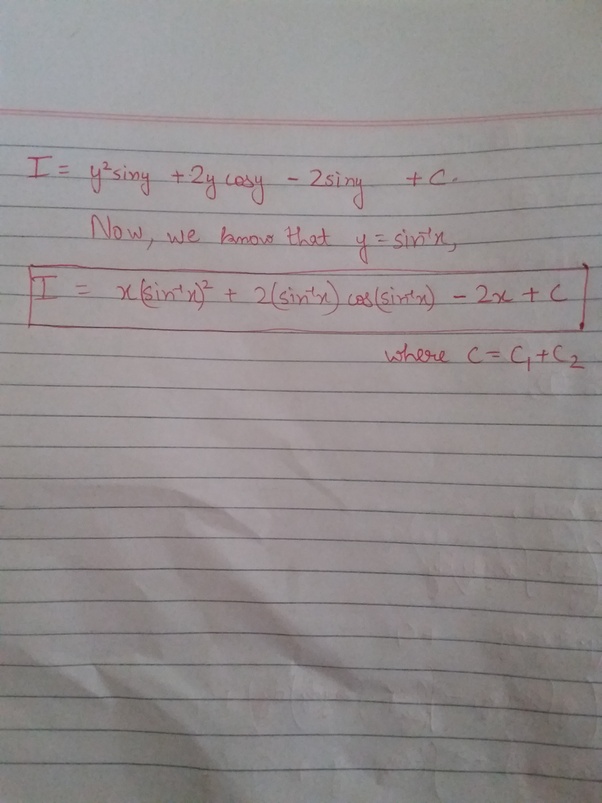 I = y²siny + 2y cosy - 2siny + C.
Now, we know that y = sin⁻¹x,
I = x(sin⁻¹x)² + 2(sin⁻¹x) cos(sin⁻¹x) - 2x + C
where C = C₁ + C₂